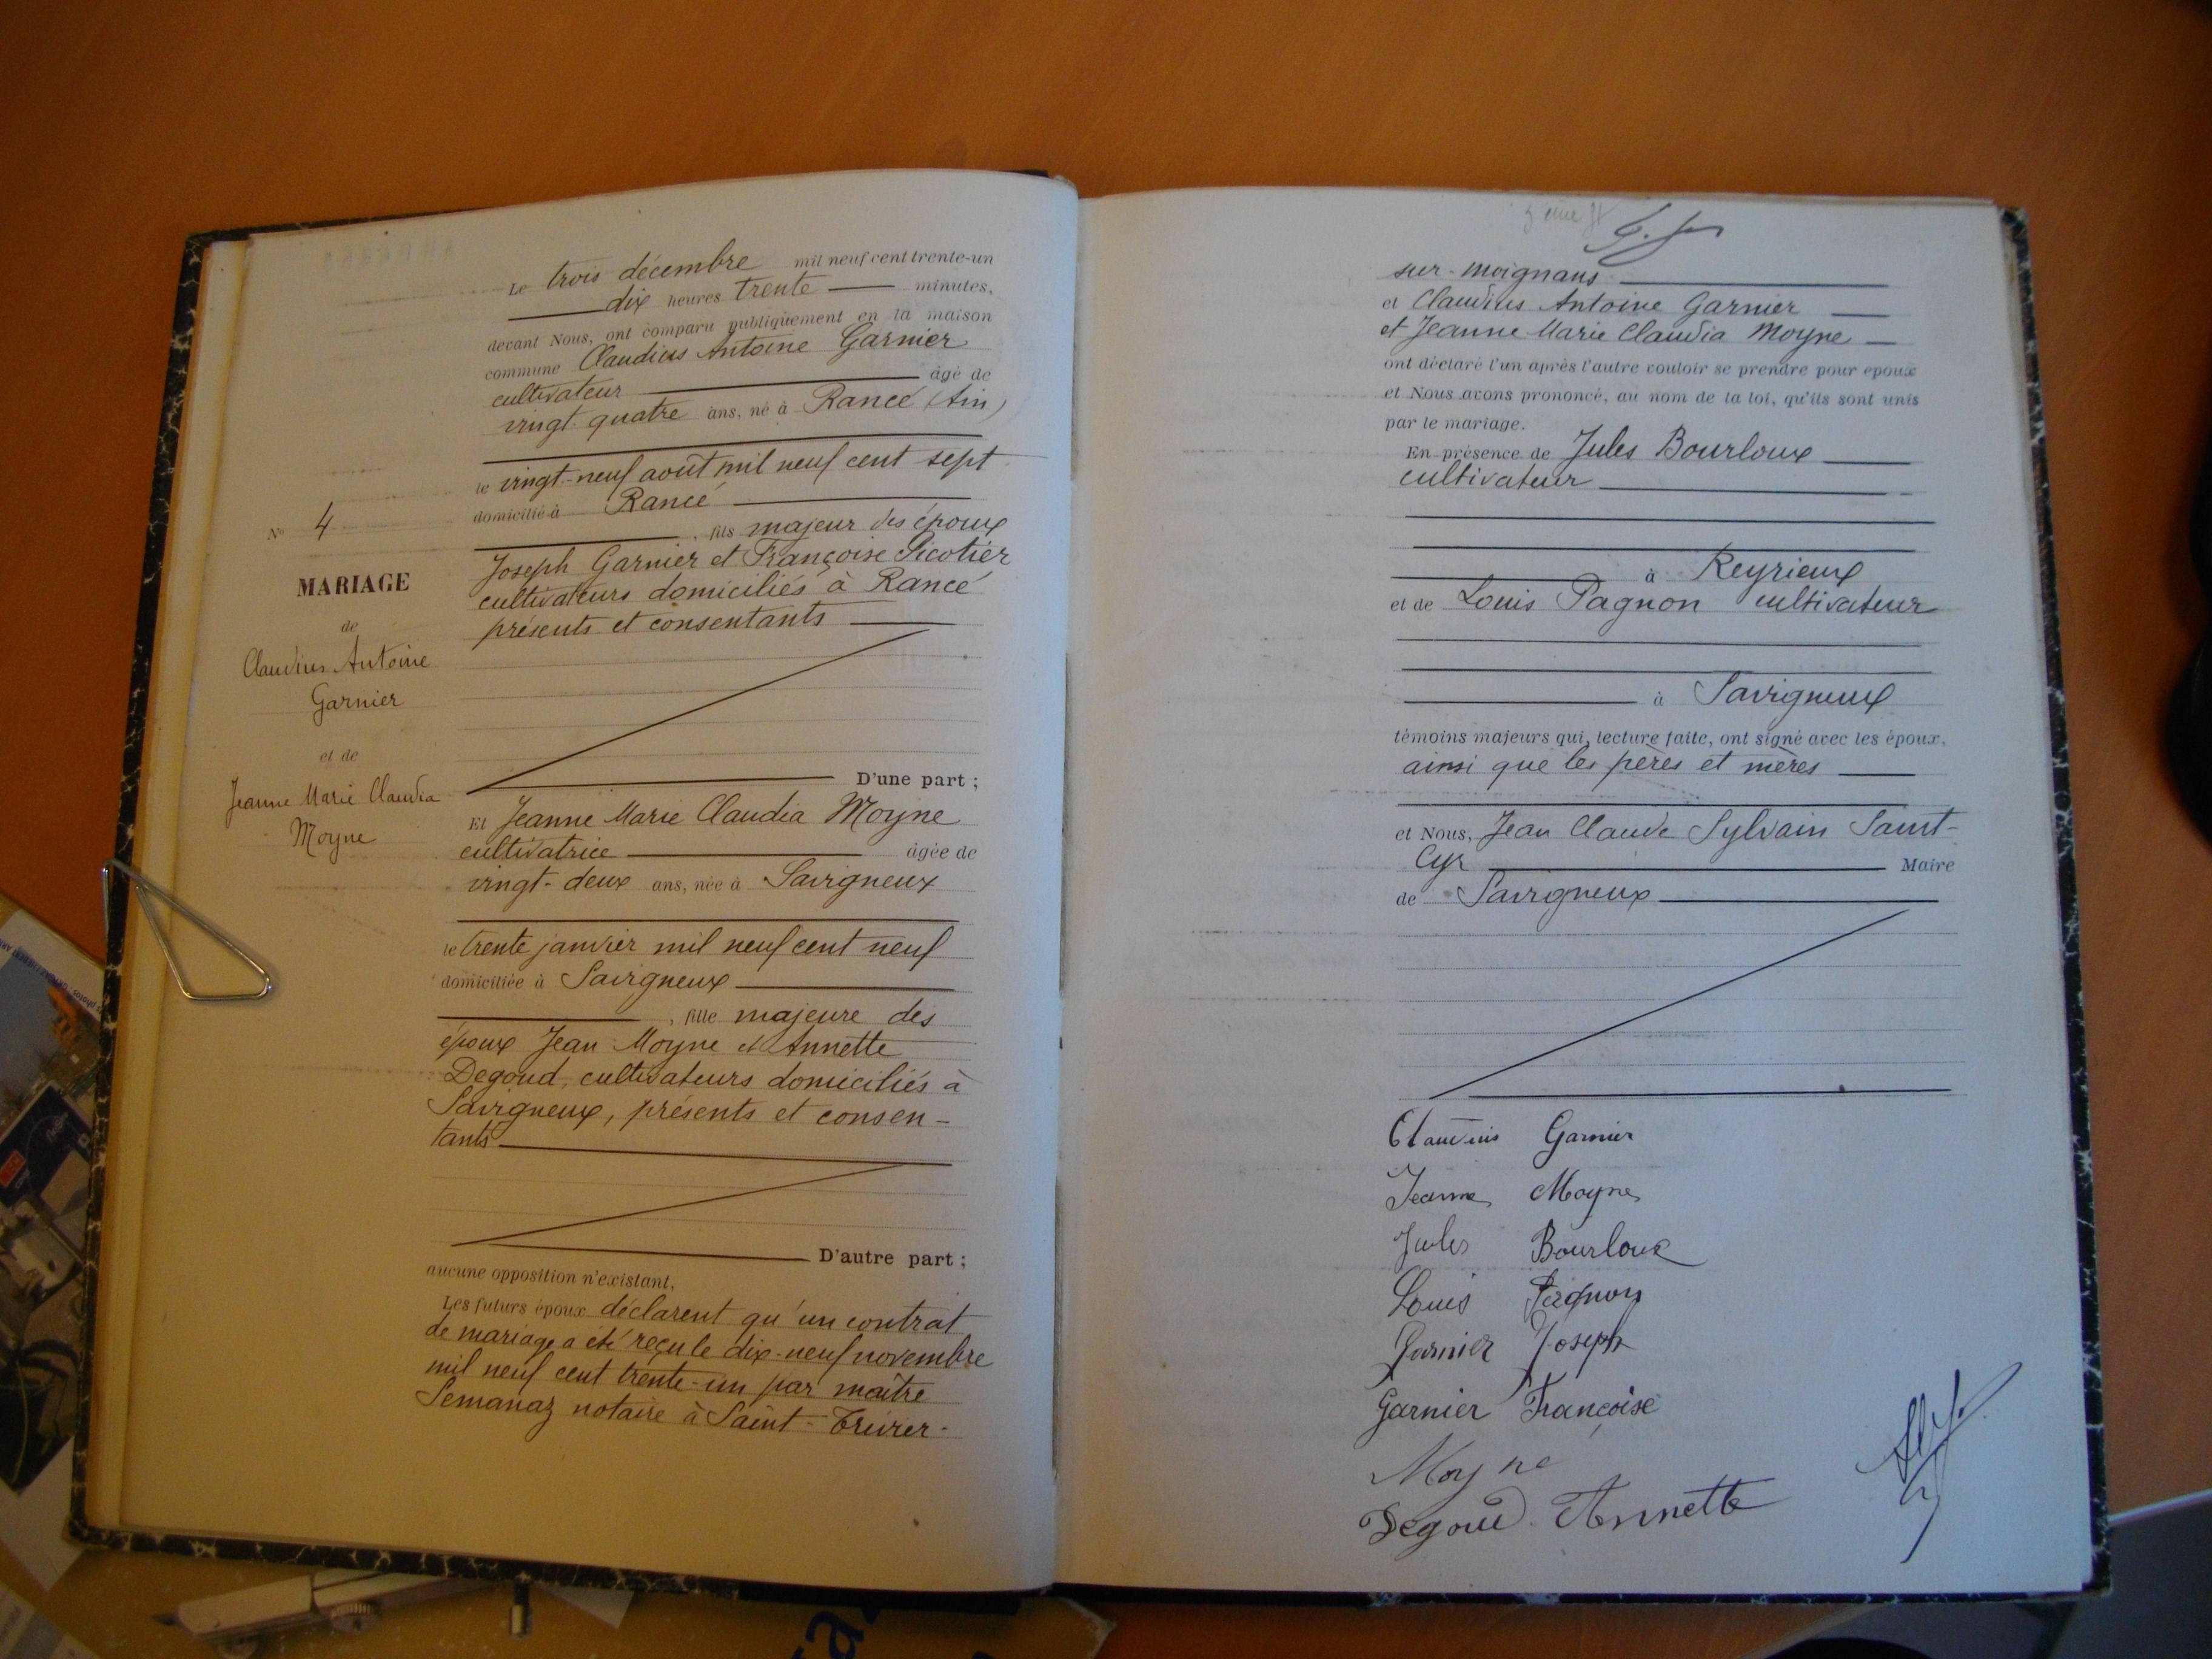 Le trois décembre mil neuf cent trente-un
dix heures trente minutes,
devant Nous, ont comparu publiquement en la maison
commune Claudius Antoine Garnier
cultivateur âgé de
vingt-quatre ans, né à Rancé (Ain)
le vingt-neuf août mil neuf cent sept
domicilié à Rancé
, fils majeur des époux
Joseph Garnier et Françoise Picotier
cultivateurs domiciliés à Rancé
présents et consentants
D'une part ;
Et Jeanne Marie Claudia Moyne
cultivatrice âgée de
vingt-deux ans, née à Savigneux
le trente janvier mil neuf cent neuf
domiciliée à Savigneux
, fille majeure des
époux Jean Moyne et Annette
Degoud, cultivateurs domiciliés à
Savigneux, présents et consen-
tants
D'autre part ;
aucune opposition n'existant,
Les futurs époux déclarent qu'un contrat
de mariage a été reçu le dix-neuf novembre
mil neuf cent trente-un par maître
Semanaz notaire à Saint-Trivier-
No 4
MARIAGE
de
Claudius Antoine
Garnier
et de
Jeanne Marie Claudia
Moyne
sur-moignans
et Claudius Antoine Garnier
et Jeanne Marie Claudia Moyne
ont déclaré l'un après l'autre vouloir se prendre pour époux
et Nous avons prononcé, au nom de la loi, qu'ils sont unis
par le mariage.
En présence de Jules Bourloux
cultivateur
à Reyrieux
et de Louis Pagnon cultivateur
à Savigneux
témoins majeurs qui, lecture faite, ont signé avec les époux,
ainsi que les pères et mères
et Nous, Jean Claude Sylvain Saint-
Cyr Maire
de Savigneux
Claudius Garnier
Jeanne Moyne
Jules Bourloux
Louis Pagnon
Garnier Joseph
Garnier Françoise
Moyne
Degoud Annette